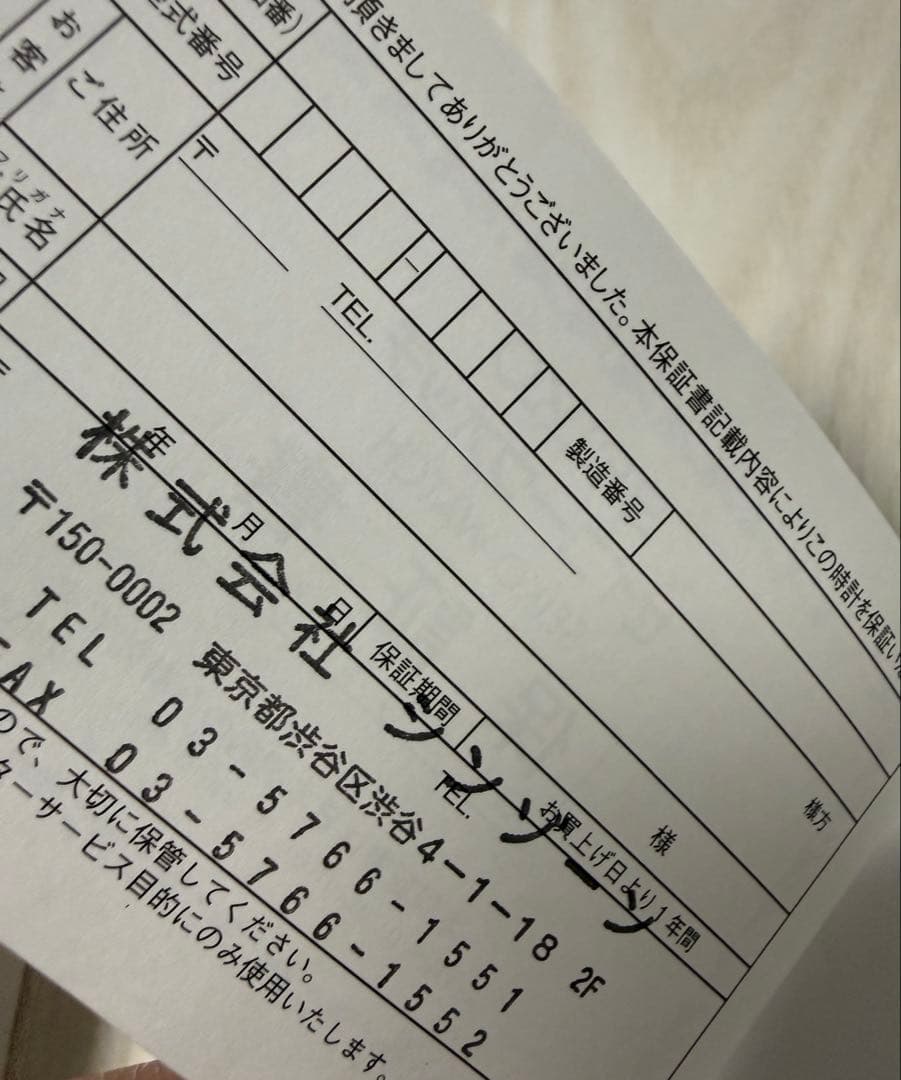 頂きましてありがとうございました。本保証書記載内容によりこの時計を保証い
番)
式番号
-
製造番号
お客
ご住所
〒
TEL.
様方
フリガナ
氏名
様
年 月 日
保証期間
お買上げ日より1年間
TEL.
株式会社 シンゾーン
〒150-0002 東京都渋谷区渋谷4-1-18 2F
TEL 03-5766-1551
FAX 03-5766-1552
ので、大切に保管してください。
ターサービス目的にのみ使用いたします。